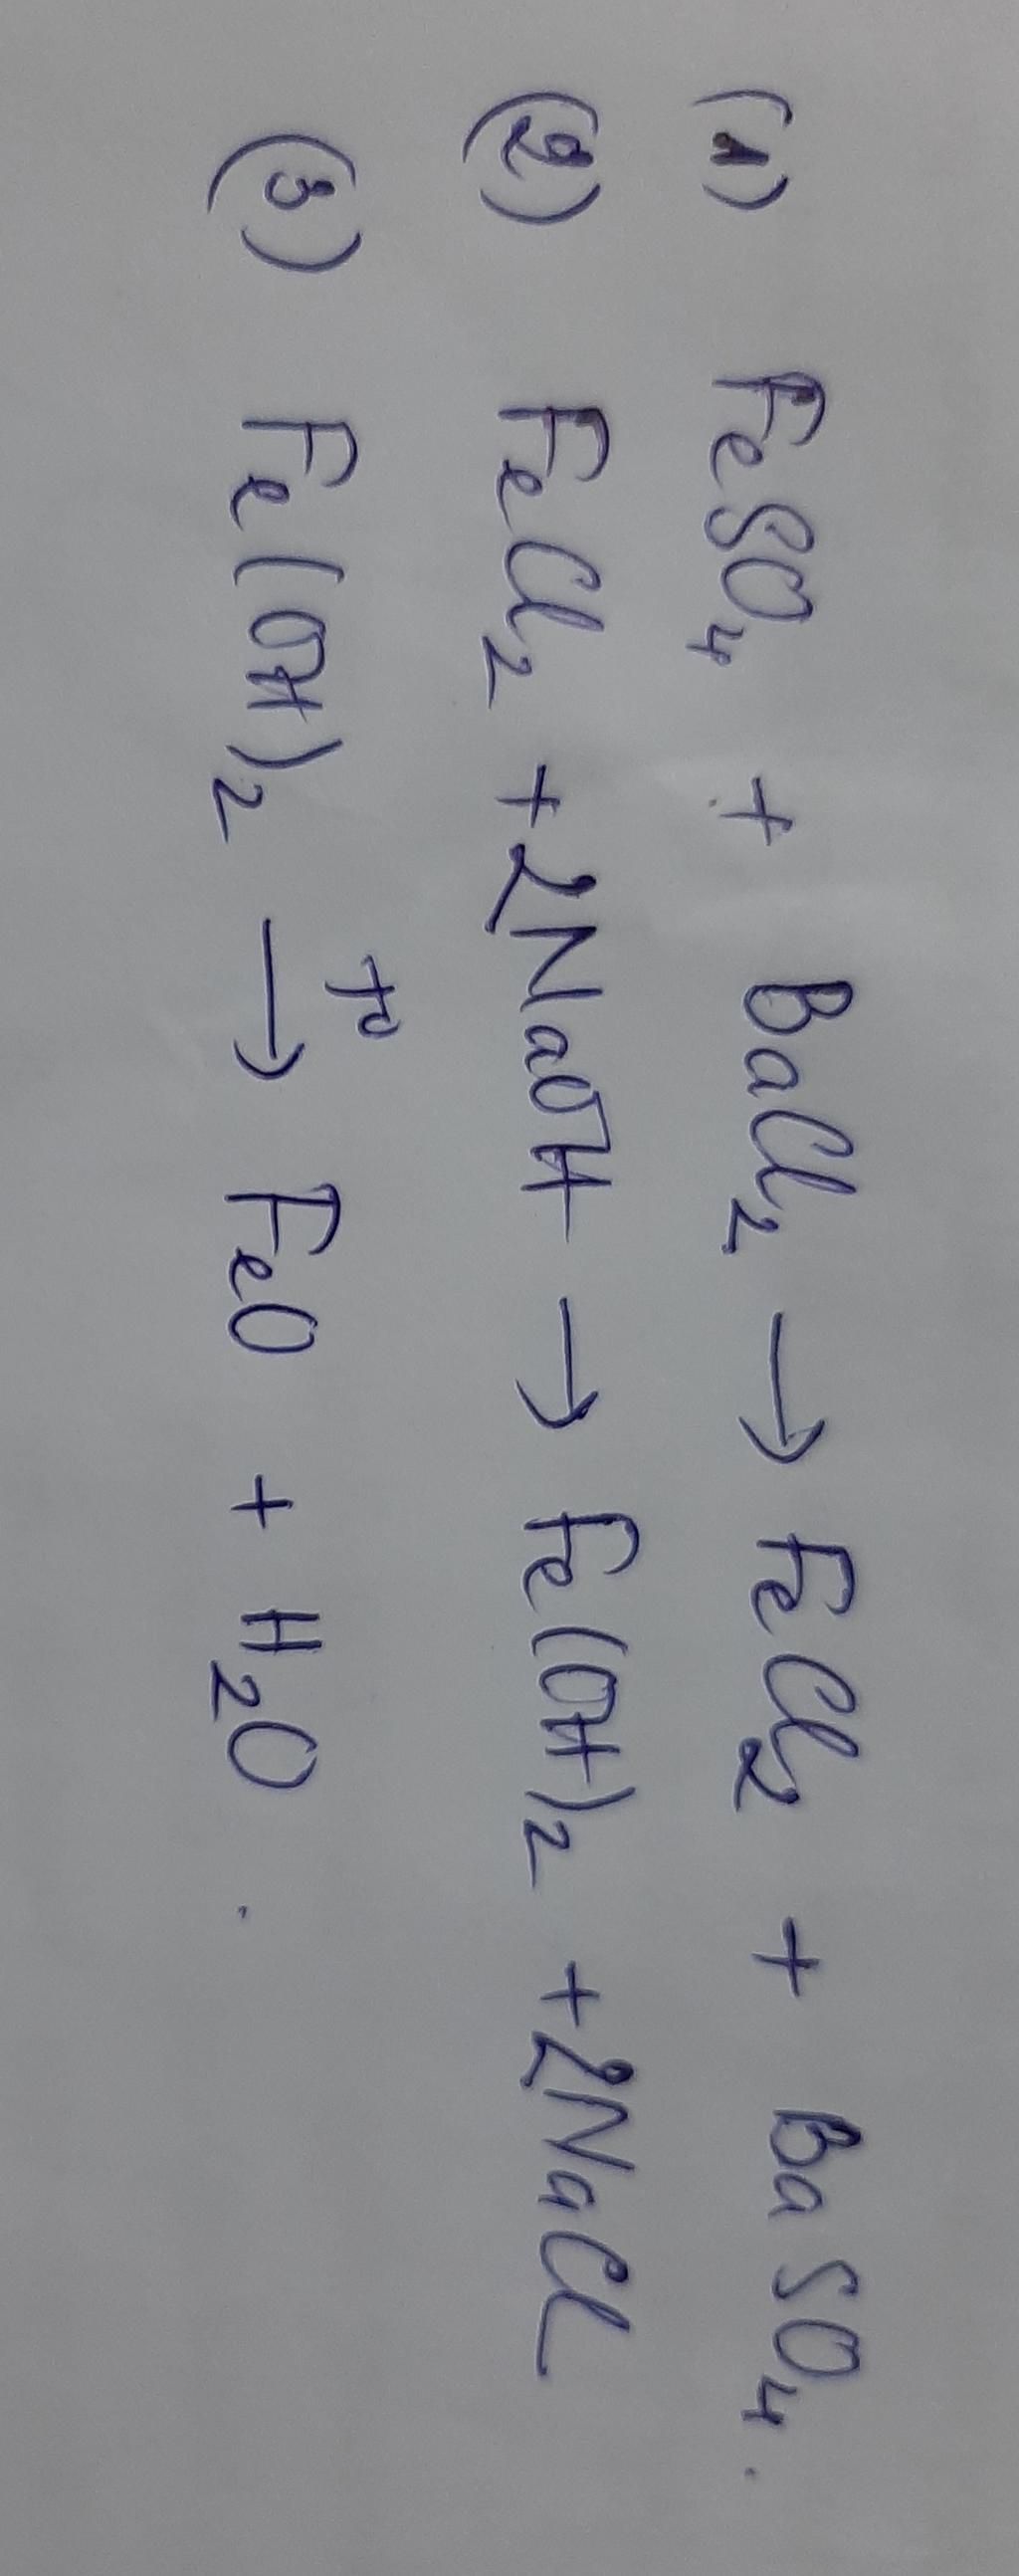 (1) FeSO₄ + BaCl₂ → FeCl₂ + BaSO₄.
(2) FeCl₂ + 2NaOH → Fe(OH)₂ + 2NaCl
(3) Fe(OH)₂ →(t⁰) FeO + H₂O.